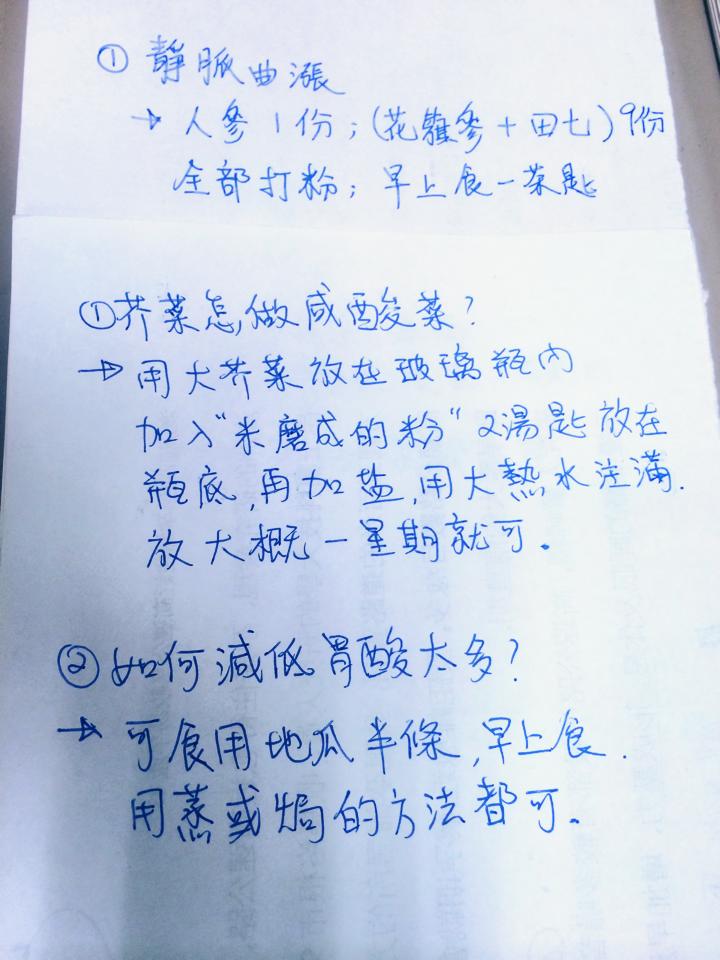 ① 靜脈曲漲
→ 人參1份;(花蘿參+田七)9份
全部打粉;早上食一茶匙
①芥菜怎做咸酸菜?
→ 用大芥菜放在玻璃瓶內
加入"米磨成的粉"2湯匙放在
瓶底,再加盐,用大熱水注滿.
放大概一星期就可。
② 如何減低胃酸太多?
→ 可食用地瓜半條,早上食.
用蒸或焗的方法都可。